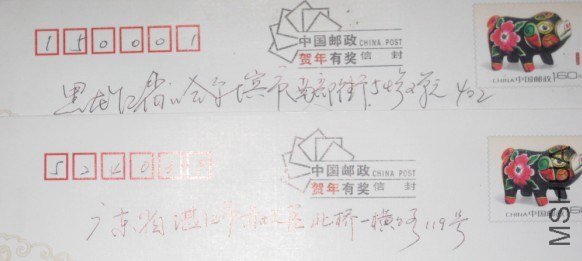 150001
中国邮政 CHINA POST
贺年有奖 信封
CHINA 中国邮政 160
黑龙江省哈尔滨市 街54 单元402
中国邮政 CHINA POST
贺年有奖 信封
CHINA 中国邮政
广东省湛江市 北桥一横路119号
MSHUA